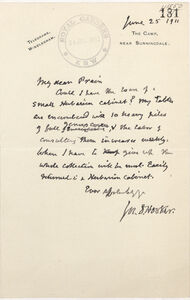 131
June 25 1911
TELEGRAMS,
WINDLESHAM.
THE CAMP,
NEAR SUNNINGDALE.
ROYAL GARDENS
KEW
My dear Prain
Could I have the loan of a
small Herbarium cabinet? My tables
are encumbered with so many piles
of full Genus covers, & the labor of
consulting them increases weekly.
When I have to give up the
whole collection will be most easily
returned in a Herbarium Cabinet.
Ever
Jos. D. Hooker.